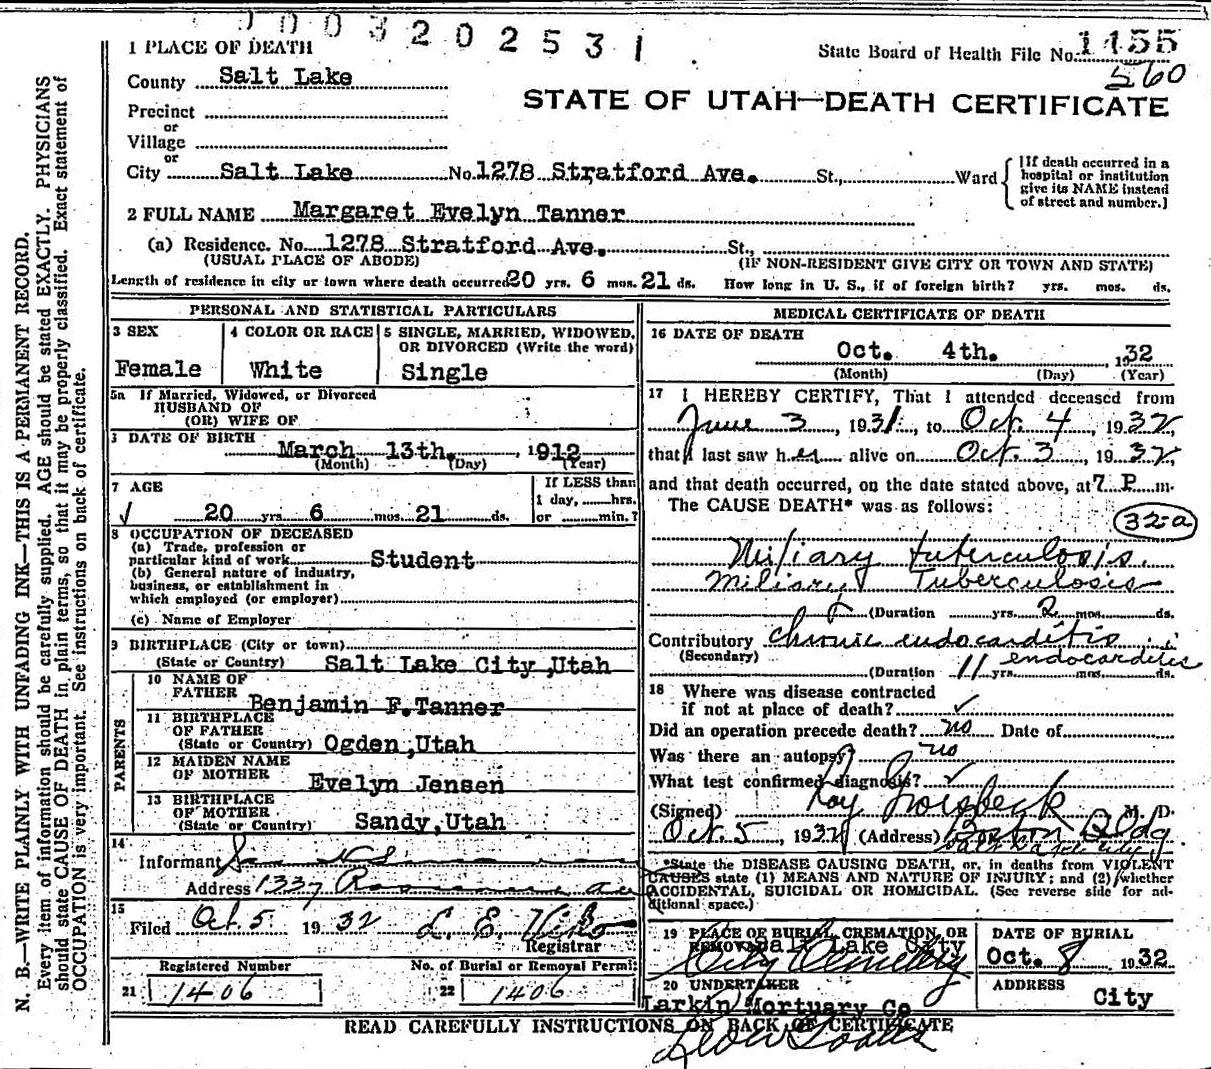 0003202531
State Board of Health File No. 1455
560
STATE OF UTAH—DEATH CERTIFICATE
1 PLACE OF DEATH
County Salt Lake
Precinct
or
Village
or
City Salt Lake No. 1278 Stratford Ave. St., Ward
[If death occurred in a hospital or institution give its NAME instead of street and number.]
2 FULL NAME Margaret Evelyn Tanner
(a) Residence. No. 1278 Stratford Ave. St.,
(USUAL PLACE OF ABODE) (IF NON-RESIDENT GIVE CITY OR TOWN AND STATE)
Length of residence in city or town where death occurred 20 yrs. 6 mos. 21 ds. How long in U. S., if of foreign birth? yrs. mos. ds.
PERSONAL AND STATISTICAL PARTICULARS
3 SEX
Female
4 COLOR OR RACE
White
5 SINGLE, MARRIED, WIDOWED,
OR DIVORCED (Write the word)
Single
5a If Married, Widowed, or Divorced
HUSBAND OF
(OR) WIFE OF
DATE OF BIRTH
March 13th. , 1912
(Month) (Day) (Year)
7 AGE
20 yrs 6 mos. 21 ds.
If LESS than
1 day, hrs.
or min.?
8 OCCUPATION OF DECEASED
(a) Trade, profession or
particular kind of work Student
(b) General nature of industry,
business, or establishment in
which employed (or employer)
(c) Name of Employer
9 BIRTHPLACE (City or town)
(State or Country) Salt Lake City, Utah
PARENTS
10 NAME OF
FATHER Benjamin F. Tanner
11 BIRTHPLACE
OF FATHER
(State or Country) Ogden, Utah
12 MAIDEN NAME
OF MOTHER Evelyn Jensen
13 BIRTHPLACE
OF MOTHER
(State or Country) Sandy, Utah
14
Informant
Address 1337
15
Filed Oct. 5 1932 L. E.
Registrar
Registered Number No. of Burial or Removal Permit
21 1406 22 1406
MEDICAL CERTIFICATE OF DEATH
16 DATE OF DEATH
Oct. 4th. 1932
(Month) (Day) (Year)
17 I HEREBY CERTIFY, That I attended deceased from
June 3, 1931, to Oct. 4, 1932,
that I last saw her alive on Oct. 3, 1932,
and that death occurred, on the date stated above, at 7 P. m.
The CAUSE DEATH* was as follows:
32-a
Miliary tuberculosis.
Miliary Tuberculosis
(Duration yrs. 2 mos. ds.
Contributory chronic endocarditis
(Secondary) endocarditis
(Duration 11 yrs. mos. ds.
18 Where was disease contracted
if not at place of death? ✓
Did an operation precede death? no Date of
Was there an autopsy? no
What test confirmed diagnosis? ✓
(Signed) Roy Groesbeck M. D.
Oct. 5, 1932 (Address) Boston Bldg
*State the DISEASE CAUSING DEATH, or, in deaths from VIOLENT
CAUSES state (1) MEANS AND NATURE OF INJURY; and (2) whether
ACCIDENTAL, SUICIDAL OR HOMICIDAL. (See reverse side for ad-
ditional space.)
19 PLACE OF BURIAL, CREMATION, OR
REMOVAL Salt Lake City
City Cemetery
DATE OF BURIAL
Oct. 8 1932
20 UNDERTAKER
Larkin Mortuary Co
ADDRESS
City
READ CAREFULLY INSTRUCTIONS ON BACK OF CERTIFICATE
N. B.—WRITE PLAINLY WITH UNFADING INK—THIS IS A PERMANENT RECORD.
Every item of information should be carefully supplied. AGE should be stated EXACTLY. PHYSICIANS
should state CAUSE OF DEATH in plain terms, so that it may be properly classified. Exact statement of
OCCUPATION is very important. See instructions on back of certificate.